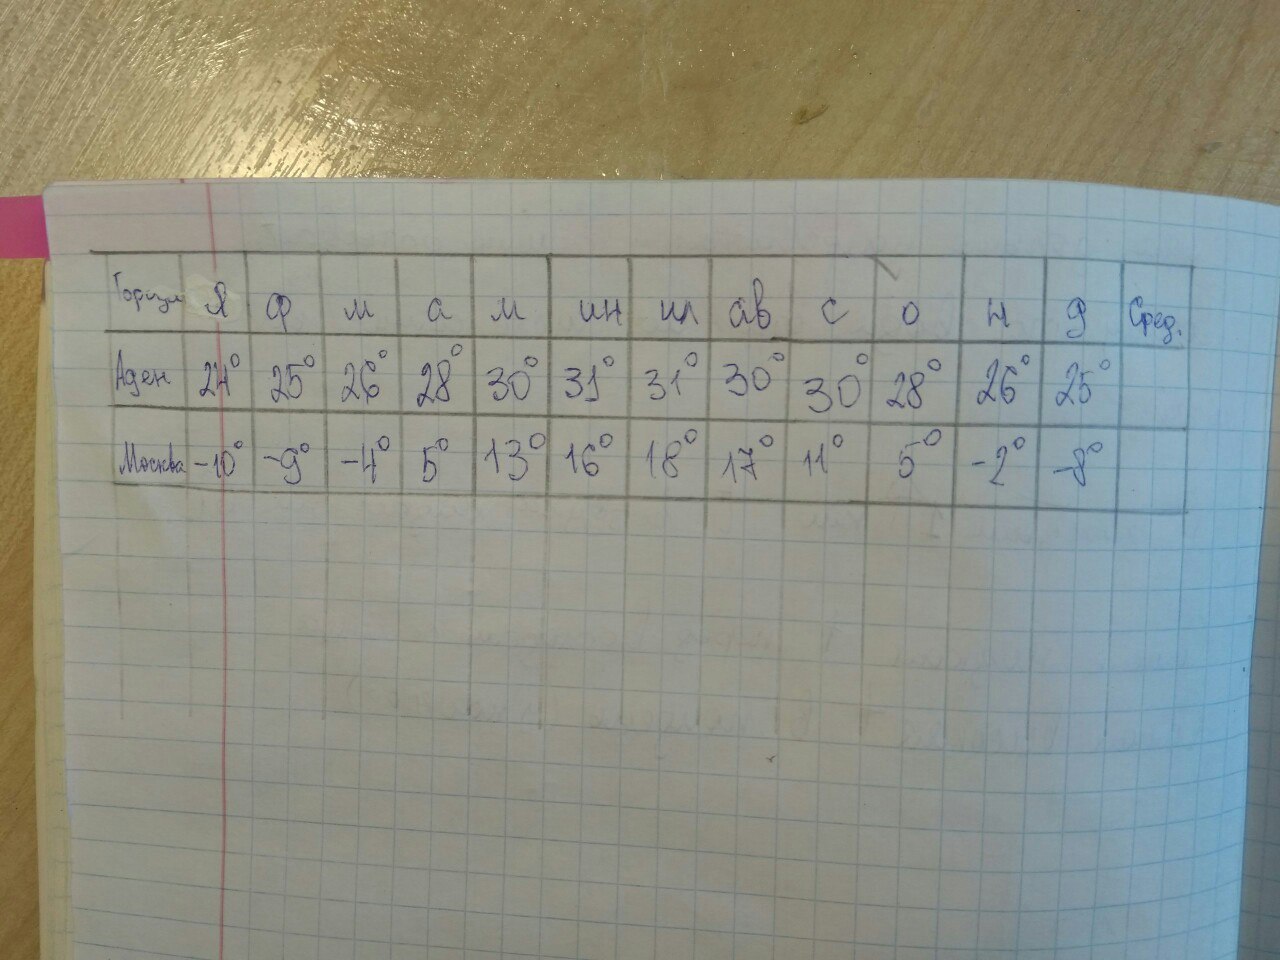 Города Я Ф м а м ин ил ав с о н д Сред.
Аден 24° 25° 26° 28° 30° 31° 31° 30° 30° 28° 26° 25°
Москва -10° -9° -4° 5° 13° 16° 18° 17° 11° 5° -2° -8°